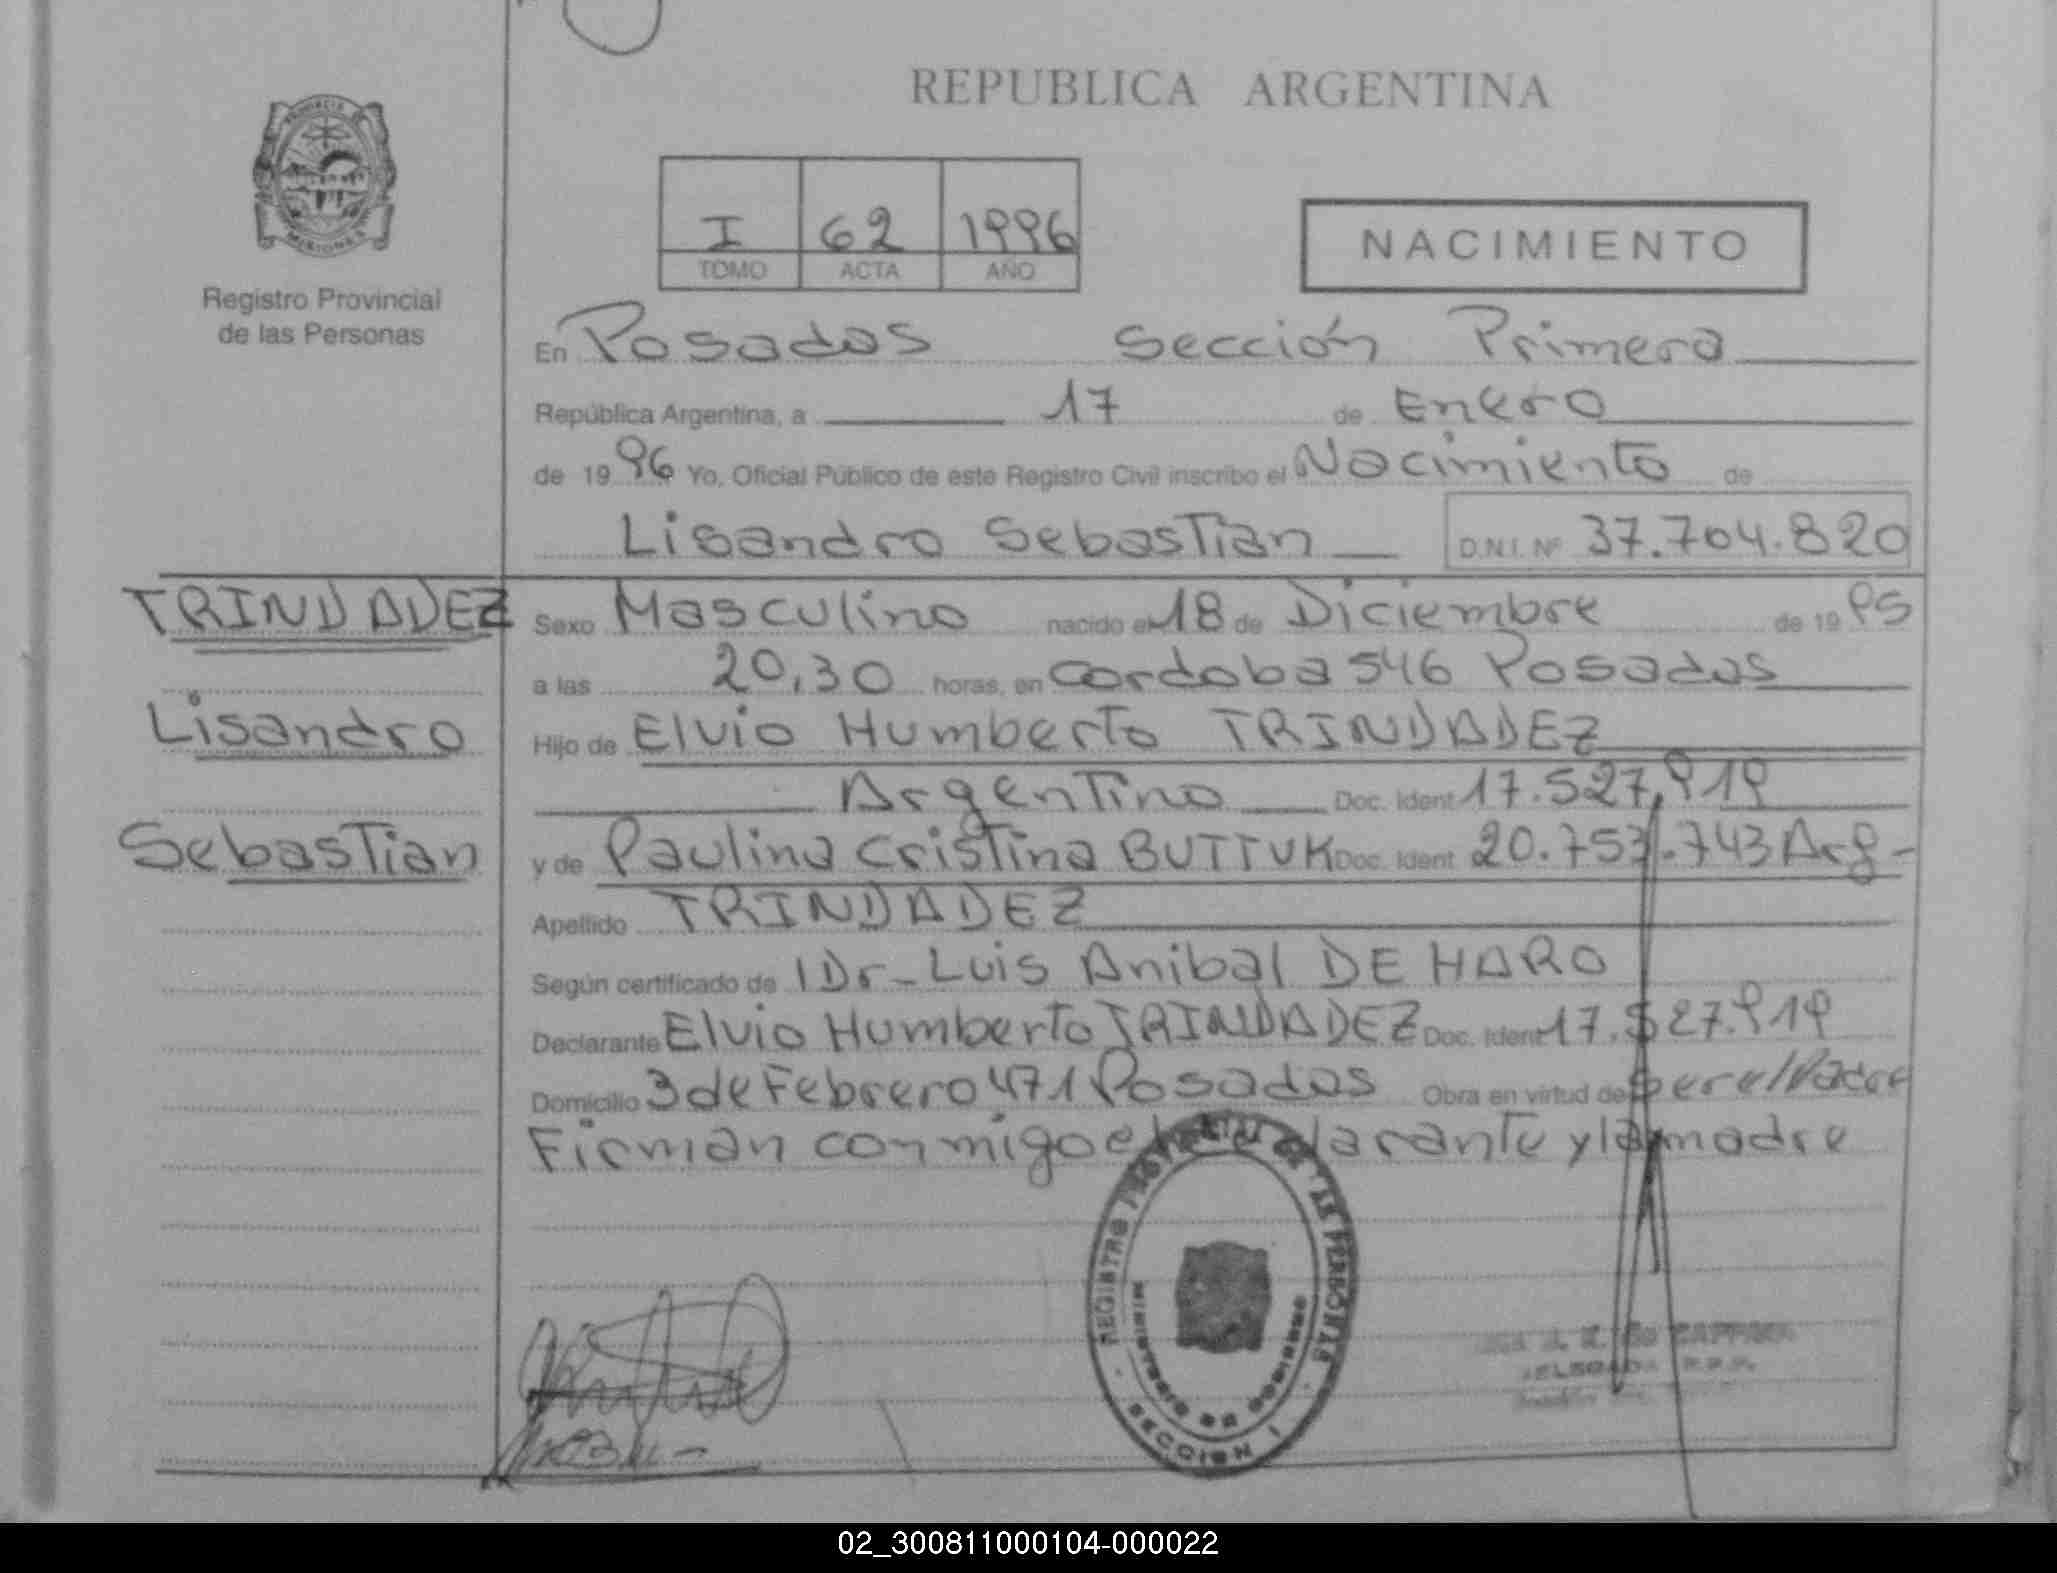 REPUBLICA ARGENTINA
PROVINCIA
MISIONES
Registro Provincial
de las Personas
I 62 1996
TOMO ACTA AÑO
NACIMIENTO
En Posadas Sección Primera
República Argentina, a 17 de Enero
de 1996 Yo, Oficial Público de este Registro Civil inscribo el Nacimiento de
Lisandro Sebastian D.N.I. Nº 37.704.820
TRINDADEZ
Lisandro
Sebastian
Sexo Masculino nacido el 18 de Diciembre de 1995
a las 20,30 horas, en Cordoba 546 Posadas
Hijo de Elvio Humberto TRINDADEZ
Argentino Doc. Ident 17.527.919
y de Paulina Cristina BUTTUK Doc. Ident 20.753.743 Arg-
Apellido TRINDADEZ
Según certificado de l Dr- Luis Anibal DE HARO
Declarante Elvio Humberto TRINDADEZ Doc. Ident 17.527.919
Domicilio 3 de Febrero 471 Posadas Obra en virtud de ser el Padre
Firman conmigo el declarante y la madre
REGISTRO PROVINCIAL DE LAS PERSONAS
MINISTERIO DE GOBIERNO
SECCION I
DELEGADA R.P.P.
02_300811000104-000022